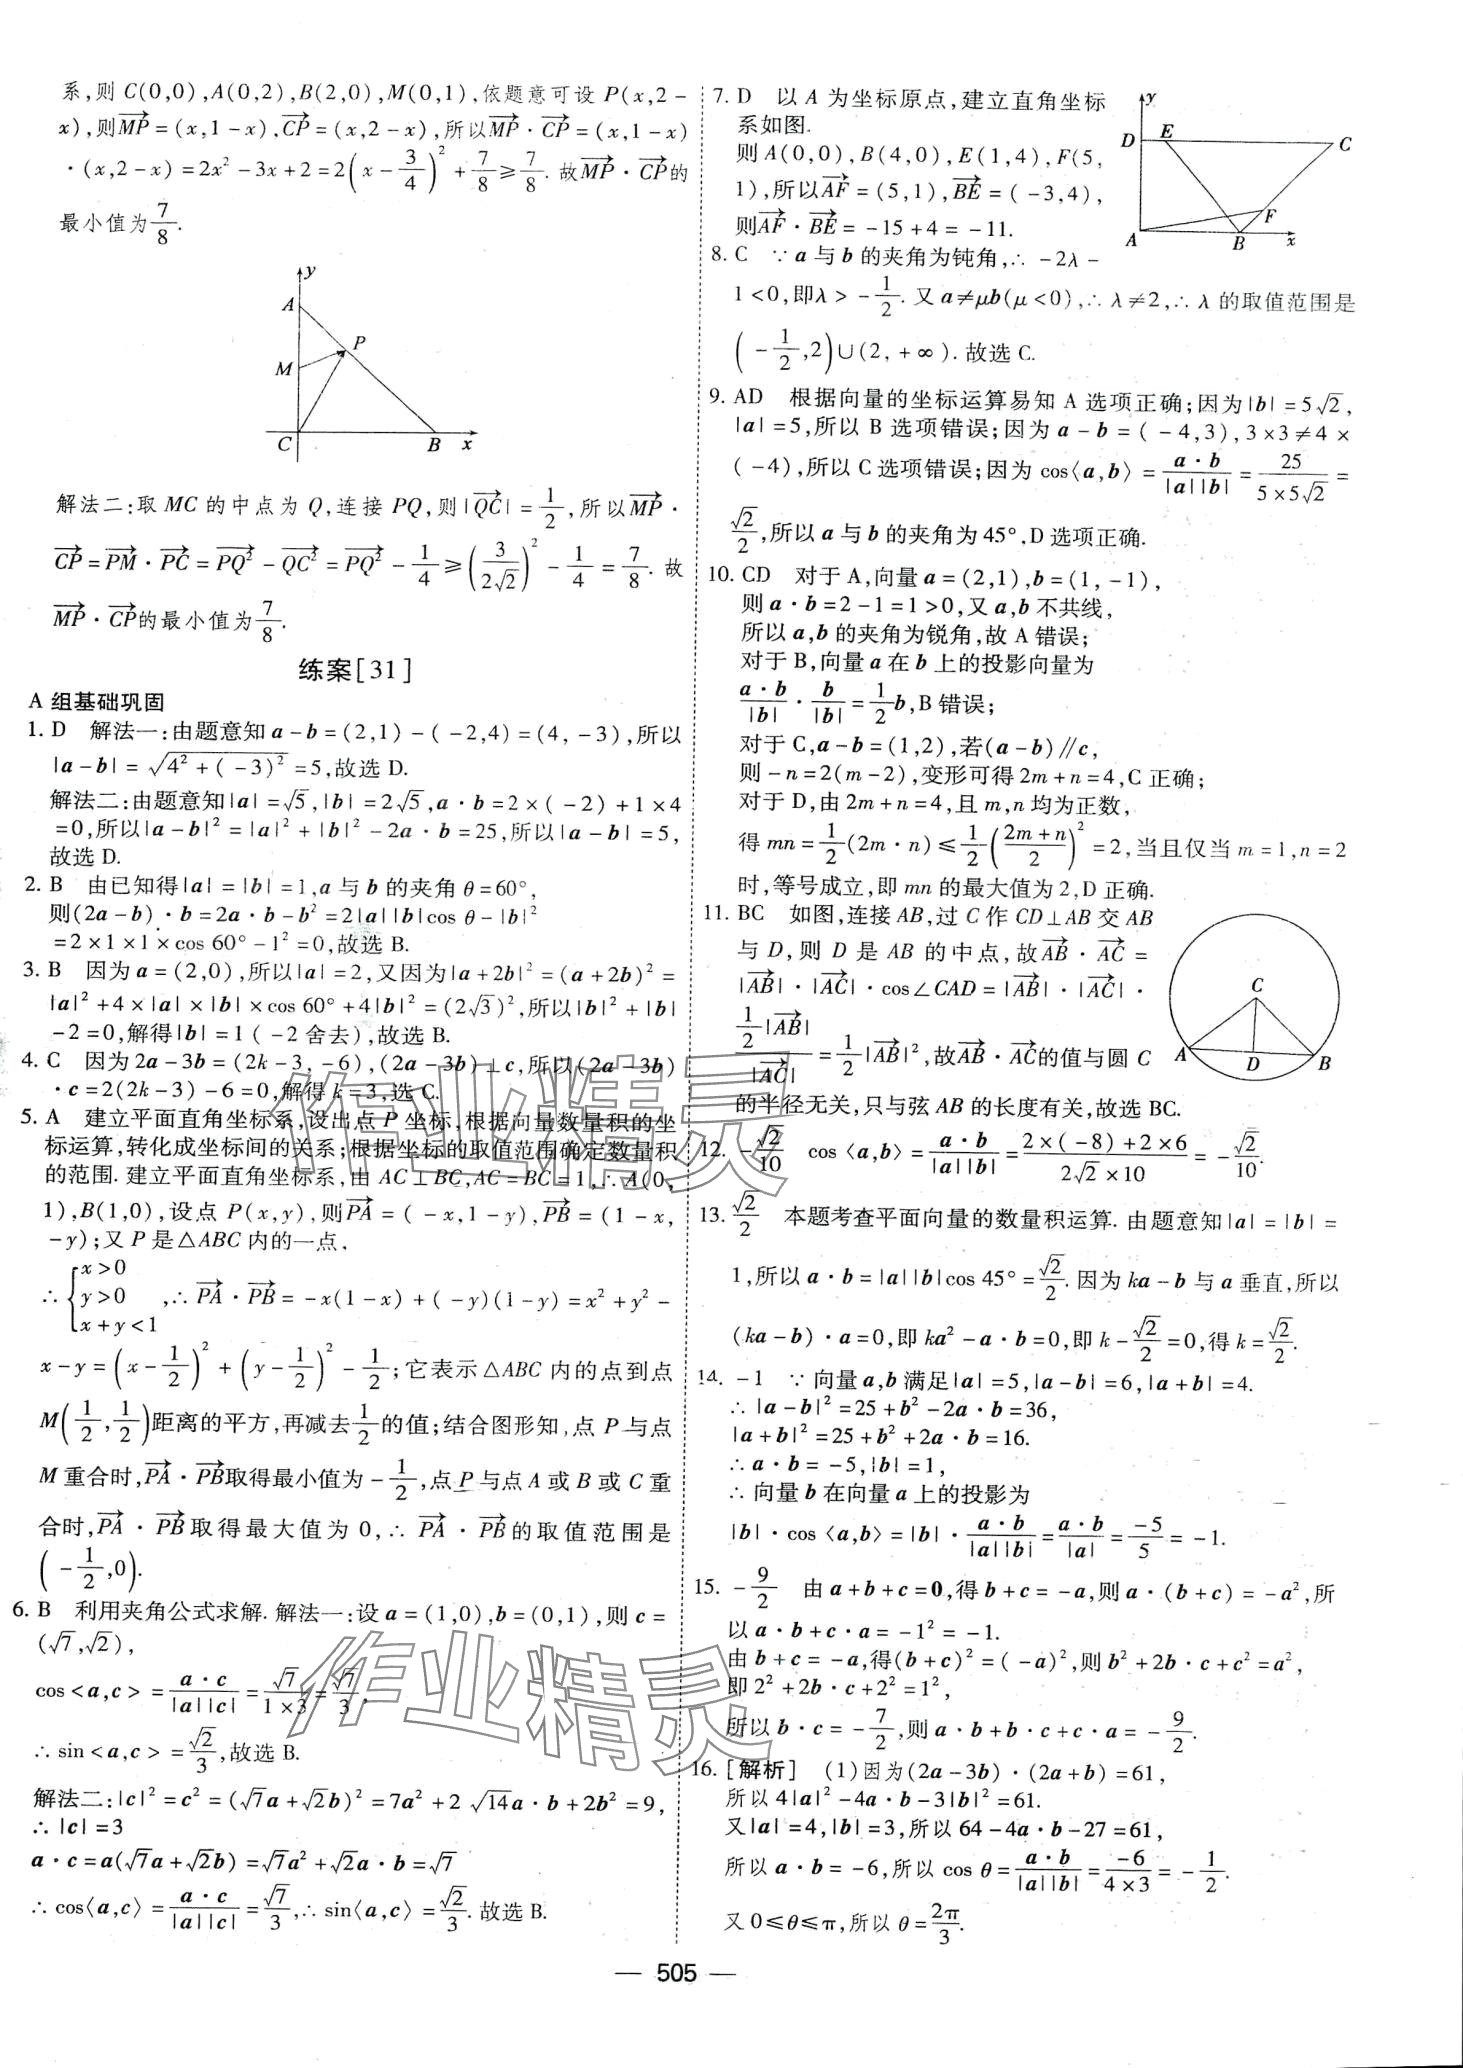 系,则 C(0,0),A(0,2),B(2,0),M(0,1),依题意可设 P(x,2-
x),则MP→=(x,1-x),CP→=(x,2-x),所以MP→·CP→=(x,1-x)
·(x,2-x)=2x²-3x+2=2(x-3/4)²+7/8≥7/8.故MP→·CP→的
最小值为7/8.
y
A
P
M
C
B
x
解法二:取 MC 的中点为 Q,连接 PQ,则|QC→|=1/2,所以MP→·
CP→=PM→·PC→=PQ→²-QC→²=PQ→²-1/4≥(3/(2√2))²-1/4=7/8.故
MP→·CP→的最小值为7/8.
练案[31]
A 组基础巩固
1. D 解法一:由题意知 a-b=(2,1)-(-2,4)=(4,-3),所以
|a-b|=√(4²+(-3)²)=5,故选 D.
解法二:由题意知|a|=√5,|b|=2√5,a·b=2×(-2)+1×4
=0,所以|a-b|²=|a|²+|b|²-2a·b=25,所以|a-b|=5,
故选 D.
2. B 由已知得|a|=|b|=1,a 与 b 的夹角 θ=60°,
则(2a-b)·b=2a·b-b²=2|a||b|cos θ-|b|²
=2×1×1×cos 60°-1²=0,故选 B.
3. B 因为 a=(2,0),所以|a|=2,又因为|a+2b|²=(a+2b)²=
|a|²+4×|a|×|b|×cos 60°+4|b|²=(2√3)²,所以|b|²+|b|
-2=0,解得|b|=1(-2舍去),故选 B.
4. C 因为 2a-3b=(2k-3,-6),(2a-3b)⊥c,所以(2a-3b)
·c=2(2k-3)-6=0,解得 k=3,选 C.
5. A 建立平面直角坐标系,设出点 P 坐标,根据向量数量积的坐
标运算,转化成坐标间的关系;根据坐标的取值范围确定数量积
的范围.建立平面直角坐标系,由 AC⊥BC,AC=BC=1,∴A(0,
1),B(1,0),设点 P(x,y),则PA→=(-x,1-y),PB→=(1-x,
-y);又 P 是△ABC 内的一点,
∴{x>0
y>0
x+y<1
,∴PA→·PB→=-x(1-x)+(-y)(1-y)=x²+y²-
x-y=(x-1/2)²+(y-1/2)²-1/2;它表示△ABC 内的点到点
M(1/2,1/2)距离的平方,再减去1/2的值;结合图形知,点 P 与点
M 重合时,PA→·PB→取得最小值为-1/2,点 P 与点 A 或 B 或 C 重
合时,PA→·PB→取得最大值为 0,∴PA→·PB→的取值范围是
(-1/2,0).
6. B 利用夹角公式求解.解法一:设 a=(1,0),b=(0,1),则 c=
(√7,√2),
cos<a,c>=a·c/|a||c|=√7/(1×3)=√7/3,
∴sin<a,c>=√2/3,故选 B.
解法二:|c|²=c²=(√7a+√2b)²=7a²+2√14a·b+2b²=9,
∴|c|=3
a·c=a(√7a+√2b)=√7a²+√2a·b=√7
∴cos⟨a,c⟩=a·c/|a||c|=√7/3,∴sin⟨a,c⟩=√2/3.故选 B.
7. D 以 A 为坐标原点,建立直角坐标
系如图.
则 A(0,0),B(4,0),E(1,4),F(5,
1),所以AF→=(5,1),BE→=(-3,4),
则AF→·BE→=-15+4=-11.
y
D
E
C
F
A
B
x
8. C ∵a 与 b 的夹角为钝角,∴-2λ-
1<0,即λ>-1/2.又 a≠μb(μ<0),∴λ≠2,∴λ 的取值范围是
(-1/2,2)∪(2,+∞).故选 C.
9. AD 根据向量的坐标运算易知 A 选项正确;因为|b|=5√2,
|a|=5,所以 B 选项错误;因为 a-b=(-4,3),3×3≠4×
(-4),所以 C 选项错误;因为 cos⟨a,b⟩=a·b/|a||b|=25/(5×5√2)=
√2/2,所以 a 与 b 的夹角为 45°,D 选项正确.
10. CD 对于 A,向量 a=(2,1),b=(1,-1),
则 a·b=2-1=1>0,又 a,b 不共线,
所以 a,b 的夹角为锐角,故 A 错误;
对于 B,向量 a 在 b 上的投影向量为
a·b/|b|·b/|b|=1/2b,B 错误;
对于 C,a-b=(1,2),若(a-b)∥c,
则-n=2(m-2),变形可得 2m+n=4,C 正确;
对于 D,由 2m+n=4,且 m,n 均为正数,
得 mn=1/2(2m·n)≤1/2((2m+n)/2)²=2,当且仅当 m=1,n=2
时,等号成立,即 mn 的最大值为 2,D 正确.
11. BC 如图,连接 AB,过 C 作 CD⊥AB 交 AB
与 D,则 D 是 AB 的中点,故AB→·AC→=
|AB→|·|AC→|·cos∠CAD=|AB→|·|AC→|·
(1/2|AB→|)/|AC→|=1/2|AB→|²,故AB→·AC→的值与圆 C
的半径无关,只与弦 AB 的长度有关,故选 BC.
C
A
D
B
12. -√2/10 cos⟨a,b⟩=a·b/|a||b|=(2×(-8)+2×6)/(2√2×10)=-√2/10.
13. √2/2 本题考查平面向量的数量积运算.由题意知|a|=|b|=
1,所以 a·b=|a||b|cos 45°=√2/2.因为 ka-b 与 a 垂直,所以
(ka-b)·a=0,即 ka²-a·b=0,即 k-√2/2=0,得 k=√2/2.
14. -1 ∵向量 a,b 满足|a|=5,|a-b|=6,|a+b|=4.
∴|a-b|²=25+b²-2a·b=36,
|a+b|²=25+b²+2a·b=16.
∴a·b=-5,|b|=1,
∴向量 b 在向量 a 上的投影为
|b|·cos⟨a,b⟩=|b|·a·b/|a||b|=a·b/|a|=-5/5=-1.
15. -9/2 由 a+b+c=0,得 b+c=-a,则 a·(b+c)=-a²,所
以 a·b+c·a=-1²=-1.
由 b+c=-a,得(b+c)²=(-a)²,则 b²+2b·c+c²=a²,
即 2²+2b·c+2²=1²,
所以 b·c=-7/2,则 a·b+b·c+c·a=-9/2.
16. [解析] (1)因为(2a-3b)·(2a+b)=61,
所以 4|a|²-4a·b-3|b|²=61.
又|a|=4,|b|=3,所以 64-4a·b-27=61,
所以 a·b=-6,所以 cos θ=a·b/|a||b|=-6/(4×3)=-1/2.
又 0≤θ≤π,所以 θ=2π/3.
作业精灵
作业精灵
— 505 —